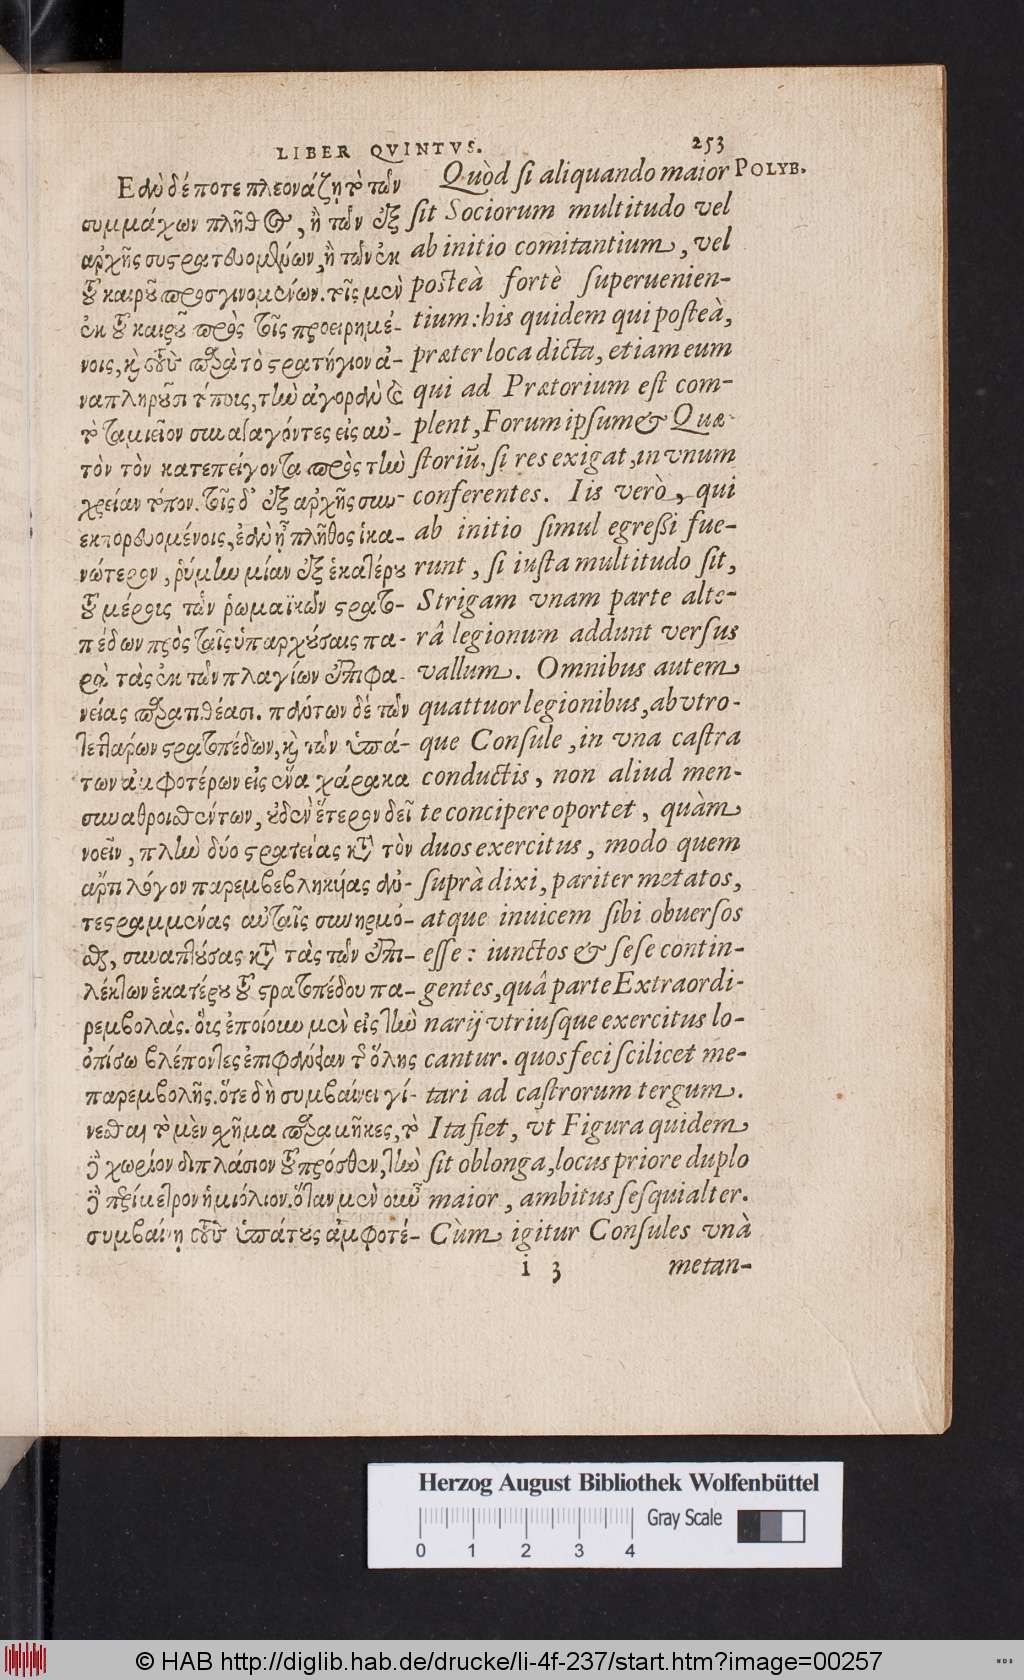 LIBER QVINTVS. 253
POLYB.
Ἐὰν δέ ποτε πλεονάζῃ τὸ τῶν
συμμάχων πλῆθος, ἢ τῶν ἐξ
ἀρχῆς συστρατευομένων, ἢ τῶν ἐκ
τοῦ καιροῦ προσγινομένων. τοῖς μὲν
ἐκ τοῦ καιροῦ πρὸς τοῖς προειρημέ-
νοις, καὶ τοὺς παρὰ τὸ στρατήγιον ἀ-
ναπληροῦσι τόποις, τὴν ἀγορὰν καὶ
τὸ ταμιεῖον συναγαγόντες εἰς αὐ-
τὸν τὸν κατεπείγοντα πρὸς τὴν
χρείαν τόπον. τοῖς δ' ἐξ ἀρχῆς συν-
εκπορευομένοις, ἐὰν ᾖ πλῆθος ἱκα-
νώτερον, ῥύμην μίαν ἐξ ἑκατέρου
τοῦ μέρους τῶν ῥωμαϊκῶν στρατο-
πέδων πρὸς ταῖς ὑπαρχούσαις πα-
ρὰ τὰς ἐκ τῶν πλαγίων ἐπιφα-
νείας παρατιθέασι. πάντων δὲ τῶν
τεττάρων στρατοπέδων, καὶ τῶν ὑπά-
των ἀμφοτέρων εἰς ἕνα χάρακα
συναθροισθέντων, οὐδὲν ἕτερον δεῖ
νοεῖν, πλὴν δύο στρατείας κατὰ τὸν
ἄρτι λόγον παρεμβεβληκυίας ἀν-
τεστραμμένας αὐταῖς συνηρμό-
σθαι, συναπτούσας κατὰ τὰς τῶν ἐπι-
λέκτων ἑκατέρου τοῦ στρατοπέδου πα-
ρεμβολὰς. οἷς ἐποίουν μὲν εἰς τὴν
ὀπίσω βλέποντες ἐπιφάνειαν τῆς ὅλης
παρεμβολῆς. ὅτε δὴ συμβαίνει γί-
νεσθαι τὸ μὲν σχῆμα παραμῆκες, τὸ
δὲ χωρίον διπλάσιον τοῦ πρόσθεν, τὴν
δὲ περίμετρον ἡμιόλιον. ὅταν μὲν οὖν
συμβαίνῃ τοὺς ὑπάτους ἀμφοτέ-
Quòd si aliquando maior
sit Sociorum multitudo vel
ab initio comitantium, vel
posteà fortè superuenien-
tium: his quidem qui posteà,
præter loca dicta, etiam eum
qui ad Prætorium est com-
plent, Forum ipsum & Quæ-
storiũ, si res exigat, in vnum
conferentes. Iis verò, qui
ab initio simul egressi fue-
runt, si iusta multitudo sit,
Strigam vnam parte alte-
râ legionum addunt versus
vallum. Omnibus autem
quattuor legionibus, ab vtro-
que Consule, in vna castra
conductis, non aliud men-
te concipere oportet, quàm
duos exercitus, modo quem
suprà dixi, pariter metatos,
atque inuicem sibi obuersos
esse: iunctos & sese contin-
gentes, quâ parte Extraordi-
narij vtriusque exercitus lo-
cantur. quos feci scilicet me-
tari ad castrorum tergum.
Ita fiet, vt Figura quidem
sit oblonga, locus priore duplo
maior, ambitus sesquialter.
Cùm igitur Consules vnà
i 3 metan-
Herzog August Bibliothek Wolfenbüttel
Gray Scale
0 1 2 3 4
© HAB http://diglib.hab.de/drucke/li-4f-237/start.htm?image=00257